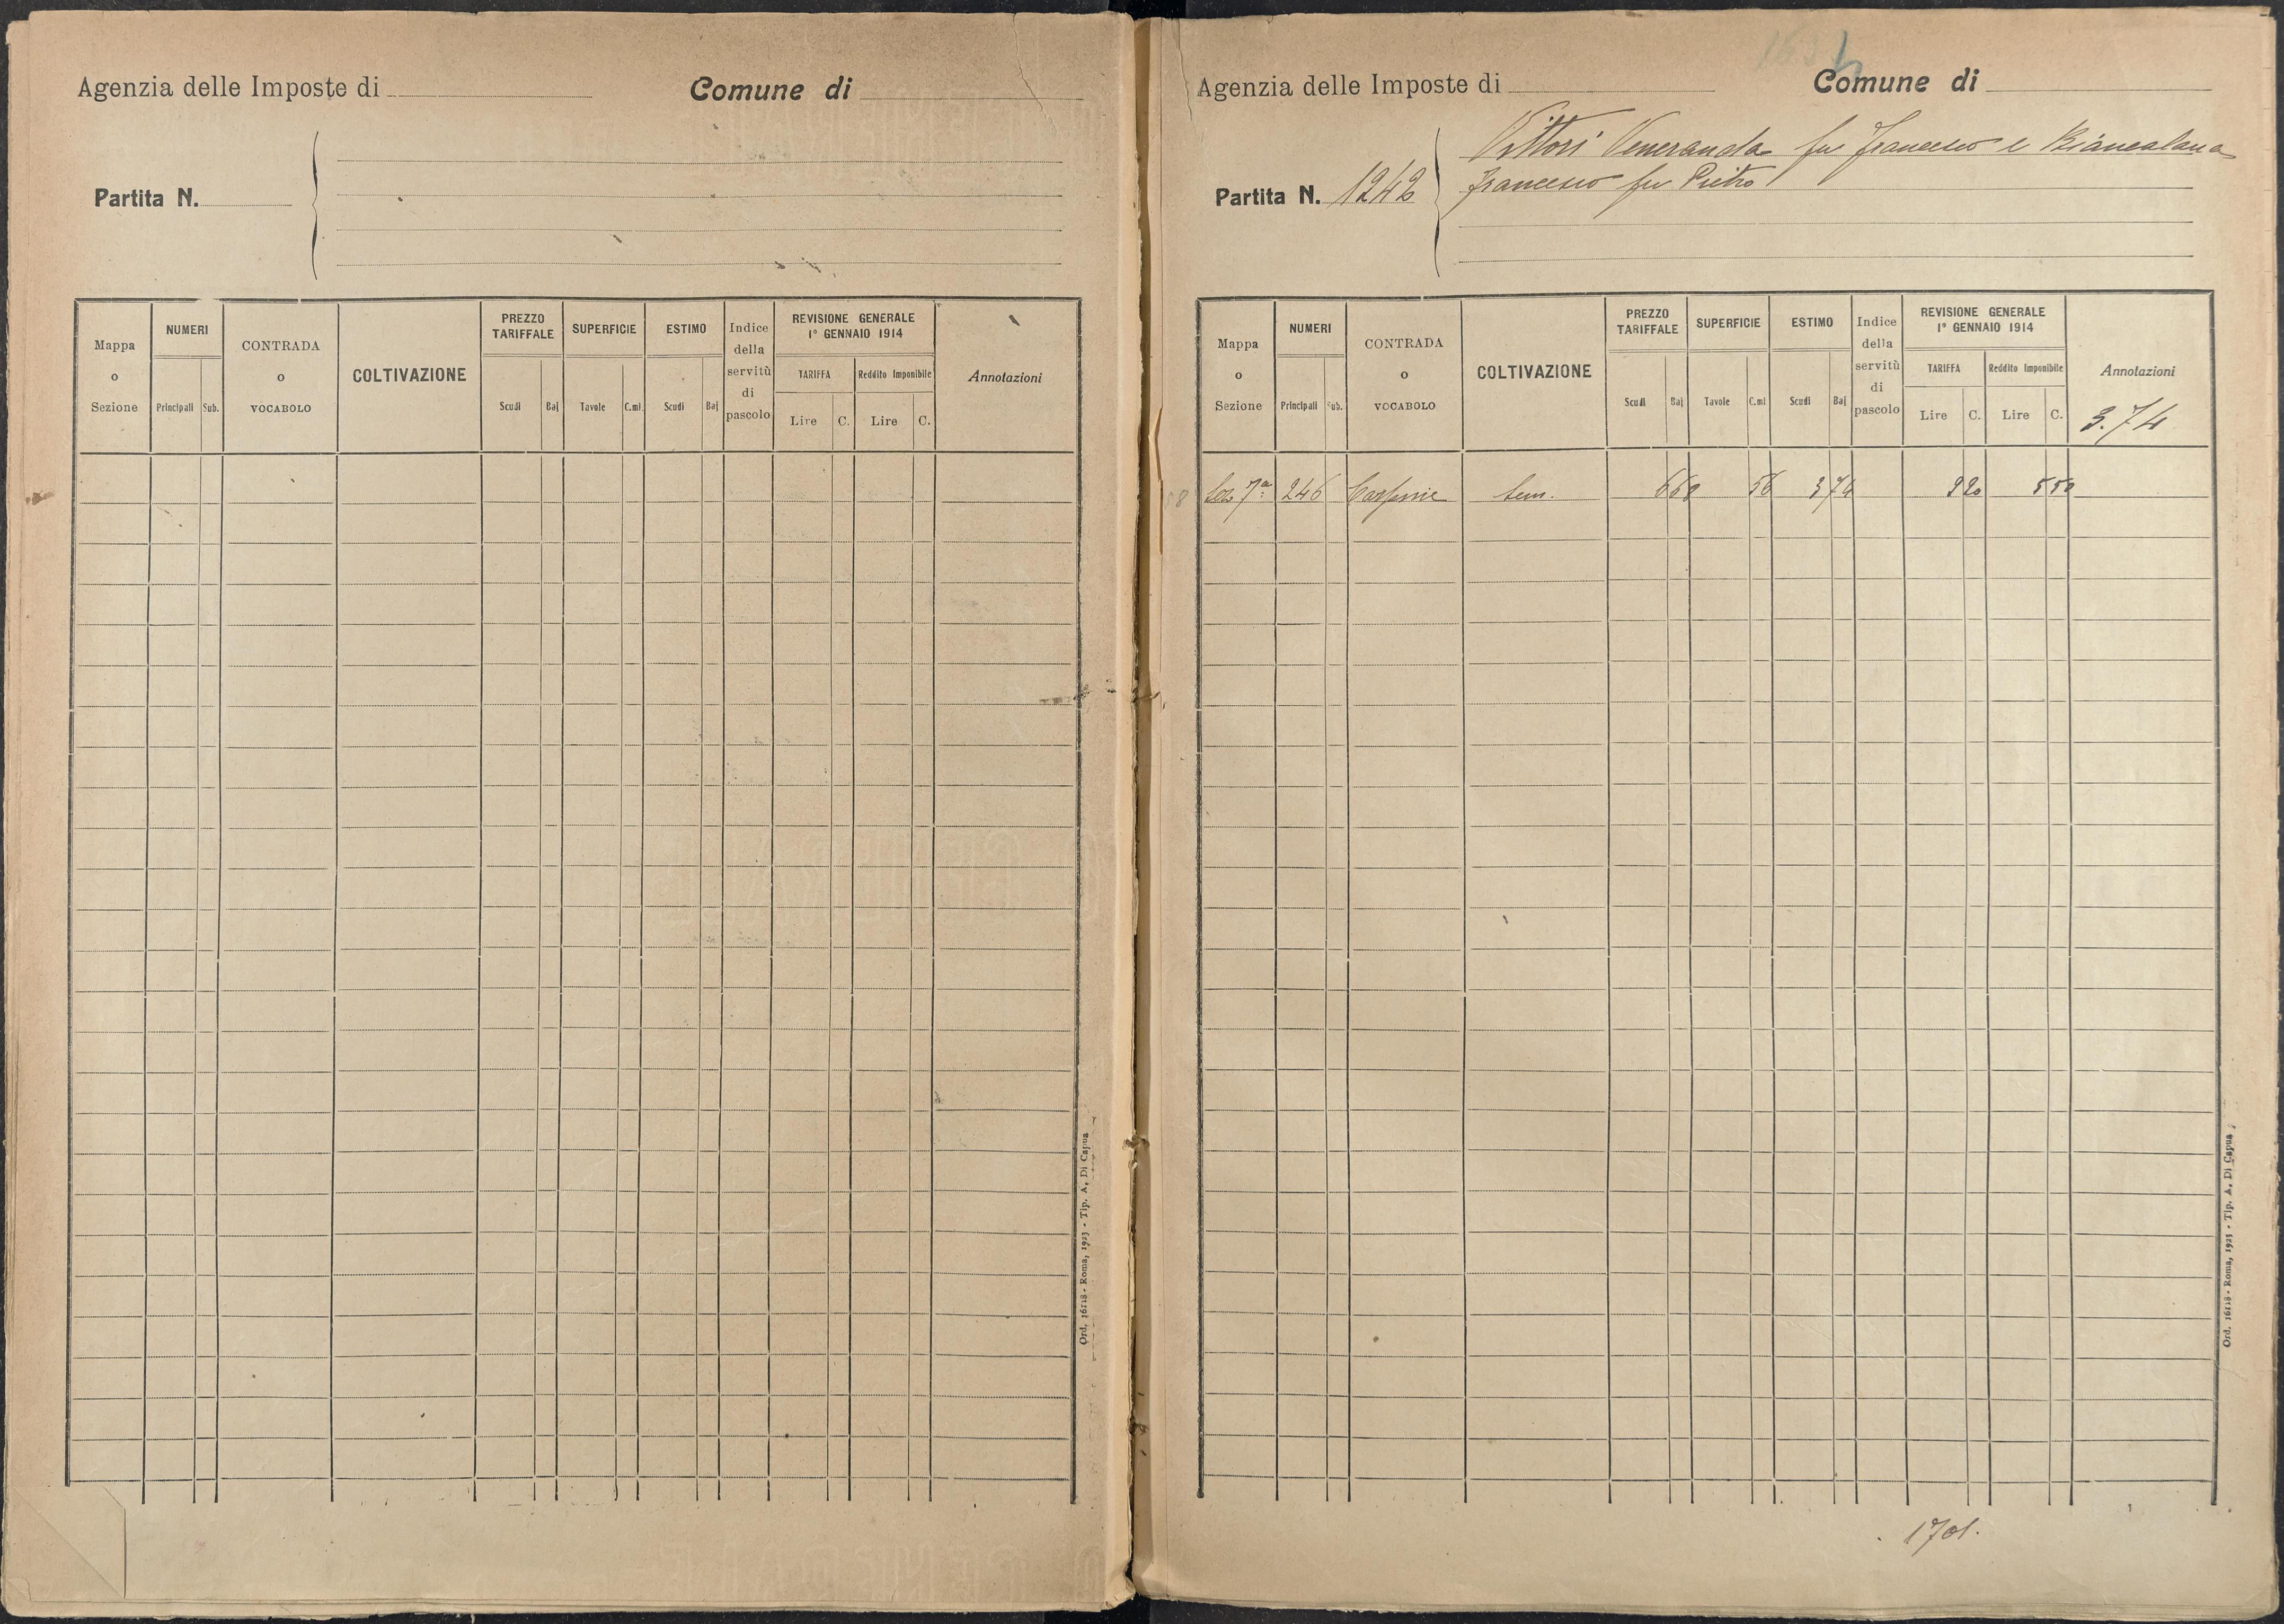 Agenzia delle Imposte di
Comune di
Partita N.
Mappa o Sezione
NUMERI
Principali
Sub.
CONTRADA o VOCABOLO
COLTIVAZIONE
PREZZO TARIFFALE
Scudi
Baj
SUPERFICIE
Tavole
C.mi
ESTIMO
Scudi
Baj
Indice della servitù di pascolo
REVISIONE GENERALE
1° GENNAIO 1914
TARIFFA
Lire
C.
Reddito Imponibile
Lire
C.
Annotazioni
Ord. 16118 - Roma, 1923 - Tip. A. Di Capua
Agenzia delle Imposte di
Comune di
Vittori Veneranda fu Francesco e Biancalana
Partita N. 1242
Francesco fu Pietro
Mappa o Sezione
NUMERI
Principali
Sub.
CONTRADA o VOCABOLO
COLTIVAZIONE
PREZZO TARIFFALE
Scudi
Baj
SUPERFICIE
Tavole
C.mi
ESTIMO
Scudi
Baj
Indice della servitù di pascolo
REVISIONE GENERALE
1° GENNAIO 1914
TARIFFA
Lire
C.
Reddito Imponibile
Lire
C.
Annotazioni
3.74
Sez 7ª 246 Sem. 6 68 56 3 74 9 20 5 50
Ord. 16118 - Roma, 1923 - Tip. A. Di Capua
1701.